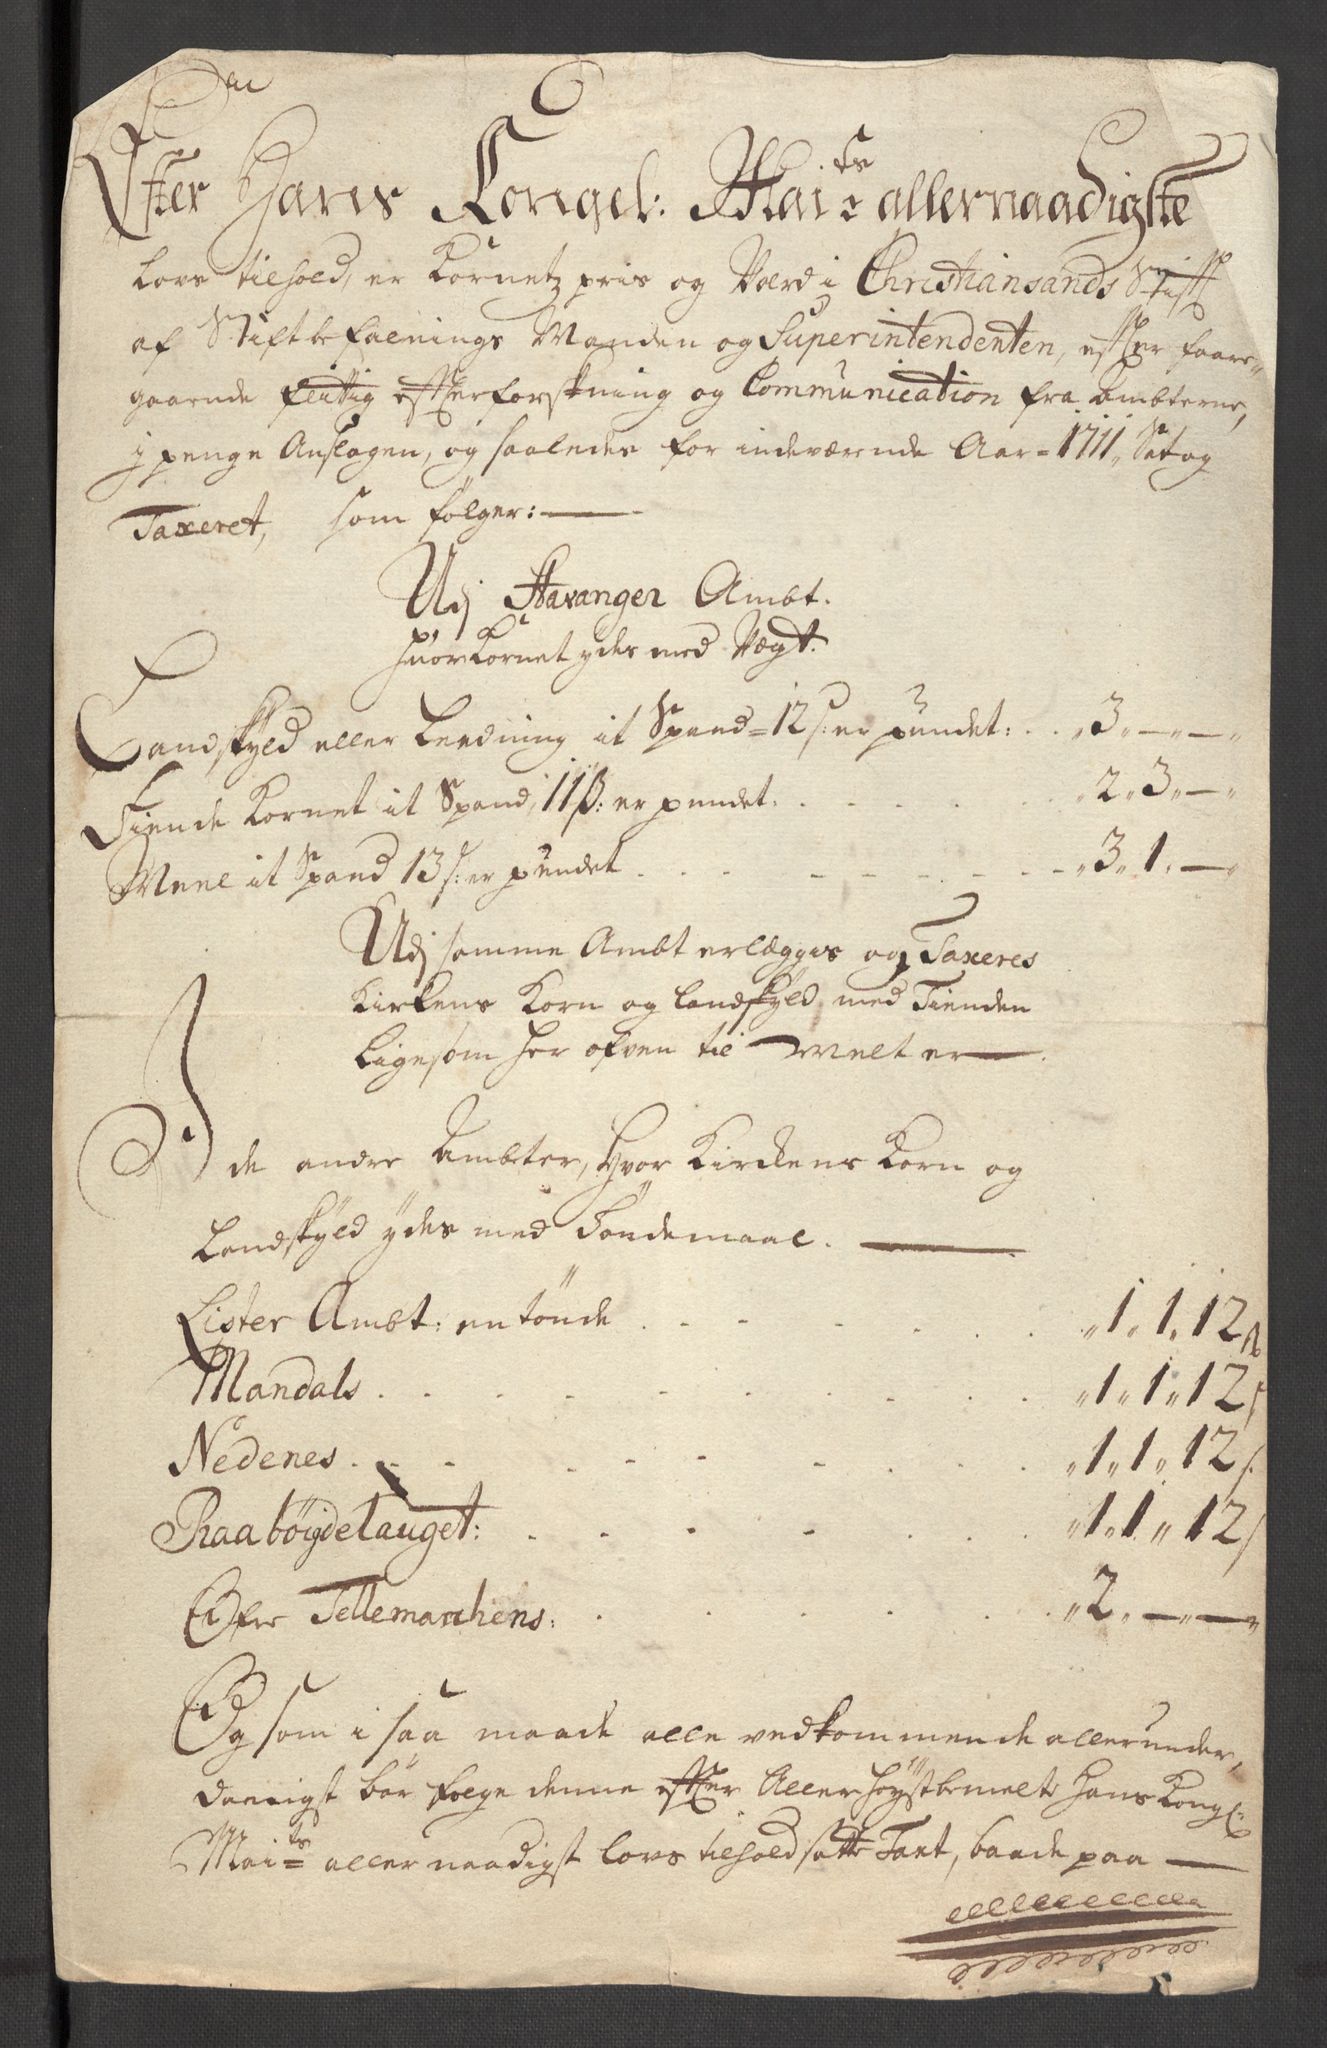 Efter Hans Kongel: Mai:ts allernaadigste
Lovs tilhold, er Kornetz priis og Værd i Christiansands Stifft
af Stiftbefalnings Manden og Superintendenten, effter faare-
gaaende flitig effterforskning og Communication fra Ambterne,
j penge Anslagen, og saaledes for indeværende Aar = 1711, Sat og
Taxeret, som følger: —
Udj Stavanger Ambt.
huor Kornet ydes med Vægt.
Landskyld eller Leedning it Spand = 12 s: er pundet: . . „3„—„—„
Tiende Kornet it Spand, 11 ß: er pundet. . . . . „2„3„—„
Meel it Spand 13 s: er pundet . . . . . . . „3„1„—„
Udj samme Ambt erlæggis og Taxeres
Kirkens Korn og Landskyld med Tienden
Ligesom her ofven til melt er — .
I de andre Ambter, Hvor Kirckens Korn og
Landskyld ÿdes med Tøndemaal. —
Lister Ambt: en tønde . . . . . . „1„1„12 ß
Mandals . . . . . . . . „1„1„12 s
Nedenes . . . . . . . . „1„1„12 s.
Raabøigdelauget: . . . . . . „1„1„12 s
Ofre Tellemarchens: . . . . . „2„—„—„
Og som i saa maade alle vedkommende allerunder,
danigst bør følge denne effter Allerhøÿstbemelte Hans Kongl:
Mai:ts allernaadigst Lovs tilhold satte Taxt, baade paa —